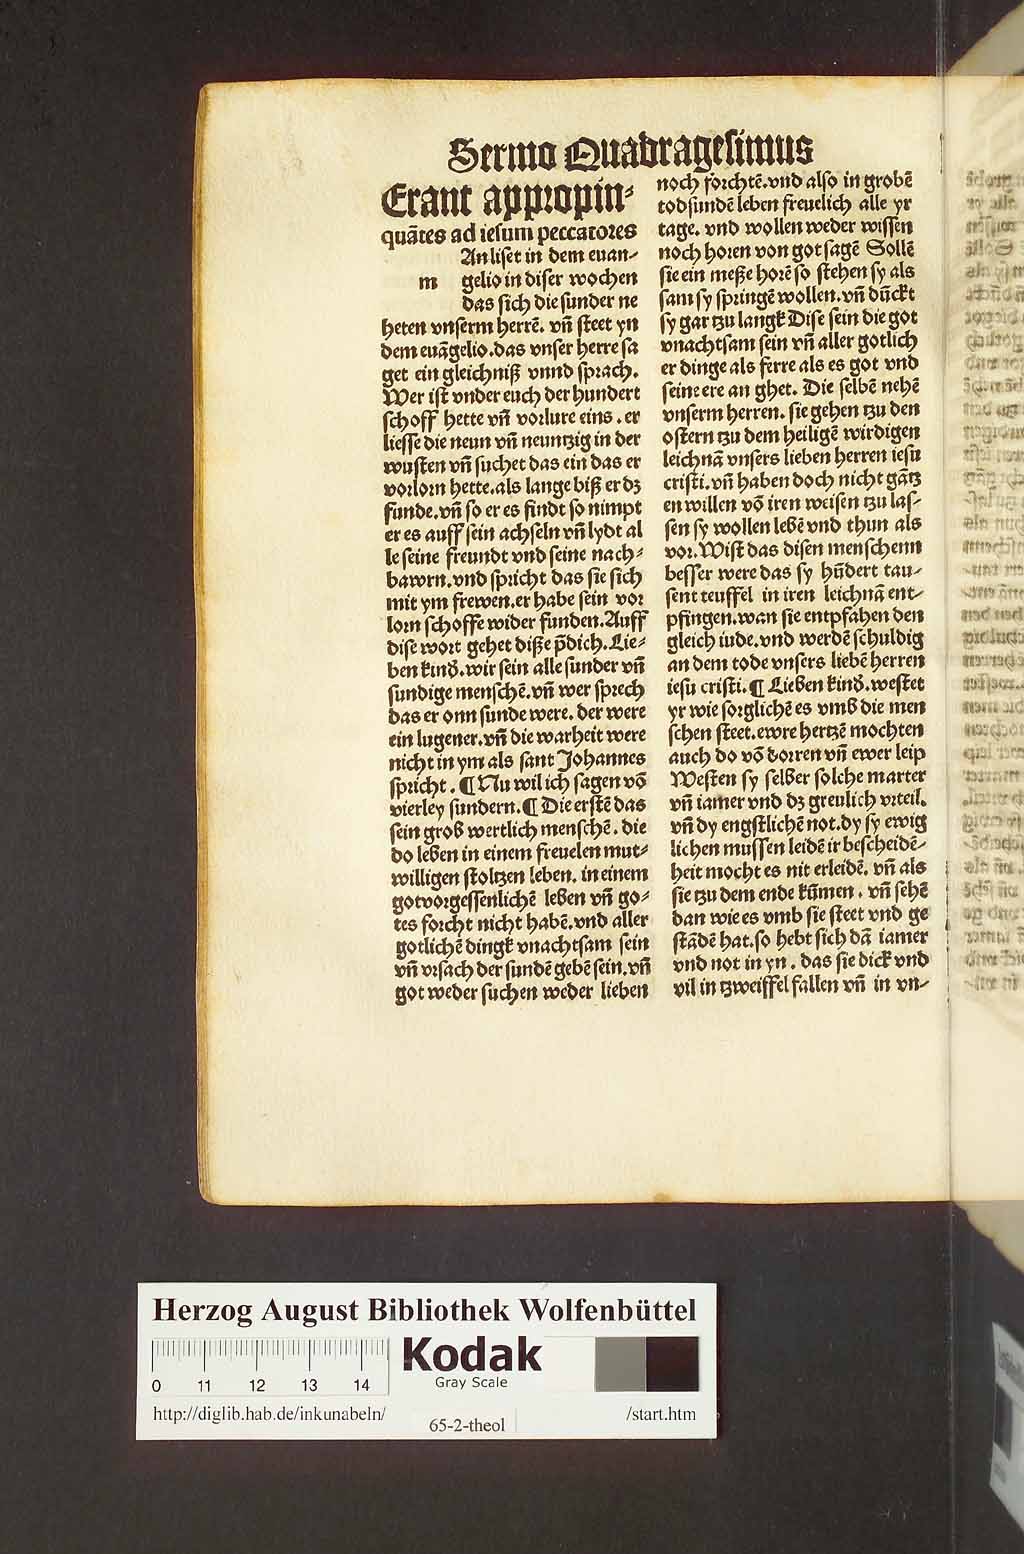 Sermo Quadragesimus
Erant appropin⸗
quātes ad iesum peccatores
An liset in dem euan-
m gelio in diser wochen
das sich die sunder ne
heten vnserm herrē. vn̄ steet yn
dem euāgelio. das vnser herre sa
get ein gleichniß vnnd sprach.
Wer ist vnder euch der hundert
schoff hette vn̄ vorlure eins. er
liesse die neun vn̄ neuntzig in der
wusten vn̄ suchet das ein das er
vorlorn hette. als lange biß er dz
funde. vn̄ so er es findt so nimpt
er es auff sein achseln vn̄ lydt al
le seine freundt vnd seine nach⸗
bawrn. vnd spricht das sie sich
mit ym frewen. er habe sein vor
lorn schoffe wider funden. Auff
dise wort gehet diße p̄dich. Lie⸗
ben kind. wir sein alle sunder vn̄
sundige menschē. vn̄ wer sprech
das er onn sunde were. der were
ein lugener. vn̄ die warheit were
nicht in ym als sant Johannes
spricht. ¶ Nu wil ich sagen vō
vierley sundern. ¶ Die erstē das
sein grob wertlich menschē. die
do leben in einem freuelen mut⸗
willigen stoltzen leben. in einem
gotvorgessenlichē leben vn̄ go⸗
tes forcht nicht habē. vnd aller
gotlichē dingk vnachtsam sein
vn̄ vrsach der sundē gebē sein. vn̄
got weder suchen weder lieben
noch forchtē. vnd also in grobē
todsundē leben freuelich alle yr
tage. vnd wollen weder wissen
noch horen von got sagē Sollē
sie ein meße horē so stehen sy als
sam sy springē wollen. vn̄ dūckt
sy gar tzu langk Dise sein die got
vnachtsam sein vn̄ aller gotlich
er dinge als ferre als es got vnd
seine ere an ghet. Die selbē nehē
vnserm herren. sie gehen tzu den
ostern tzu dem heiligē wirdigen
leichnā vnsers lieben herren iesu
cristi. vn̄ haben doch nicht gātz
en willen vō iren weisen tzu las-
sen sy wollen lebē vnd thun als
vor. Wist das disen menschenn
besser were das sy hūdert tau-
sent teuffel in iren leichnā ent-
pfingen. wan sie entpfahen den
gleich iude. vnd werdē schuldig
an dem tode vnsers liebē herren
iesu cristi. ¶ Lieben kind. westet
yr wie sorglichē es vmb die men
schen steet. ewre hertzē mochten
auch do vō dorren vn̄ ewer leip
Westen sy selber solche marter
vn̄ iamer vnd dz greulich vrteil.
vn̄ dy engstlichē not. dy sy ewig
lichen mussen leidē ir bescheidē-
heit mocht es nit erleidē. vn̄ als
sie tzu dem ende kūmen. vn̄ sehē
dan wie es vmb sie steet vnd ge
stādē hat. so hebt sich dā iamer
vnd not in yn. das sie dick vnd
vil in tzweiffel fallen vn̄ in vn-
Herzog August Bibliothek Wolfenbüttel
Kodak
Gray Scale
0 11 12 13 14
http://diglib.hab.de/inkunabeln/ 65-2-theol /start.htm